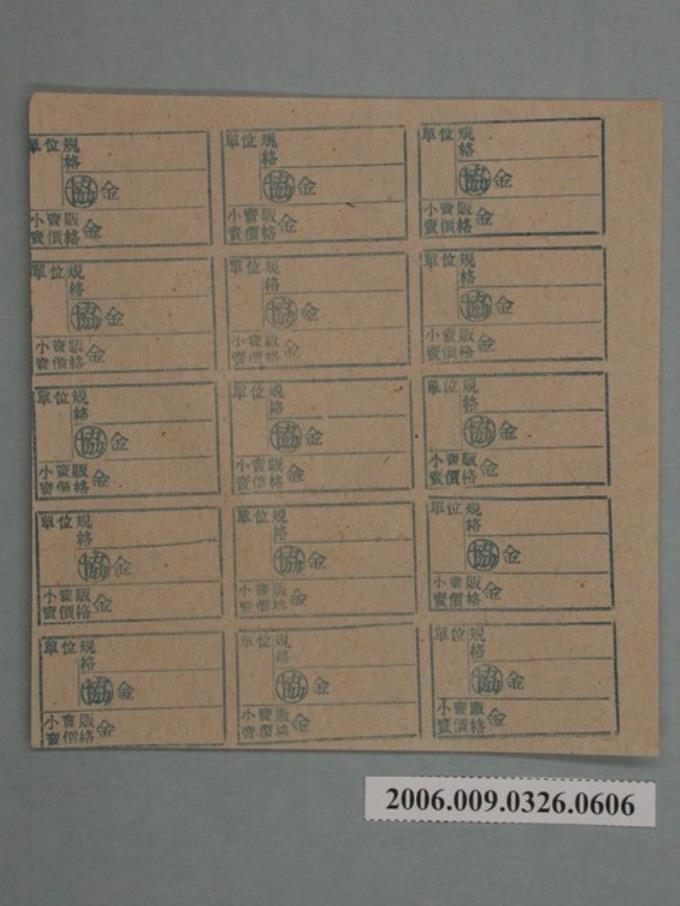 單位規格 單位規格 單位規格
協金 協金 協金
小賣販賣價格金 小賣販賣價格金 小賣販賣價格金
單位規格 單位規格 單位規格
協金 協金 協金
小賣販賣價格金 小賣販賣價格金 小賣販賣價格金
單位規格 單位規格 單位規格
協金 協金 協金
小賣販賣價格金 小賣販賣價格金 小賣販賣價格金
單位規格 單位規格 單位規格
協金 協金 協金
小賣販賣價格金 小賣販賣價格金 小賣販賣價格金
單位規格 單位規格 單位規格
協金 協金 協金
小賣販賣價格金 小賣販賣價格金 小賣販賣價格金
2006.009.0326.0606